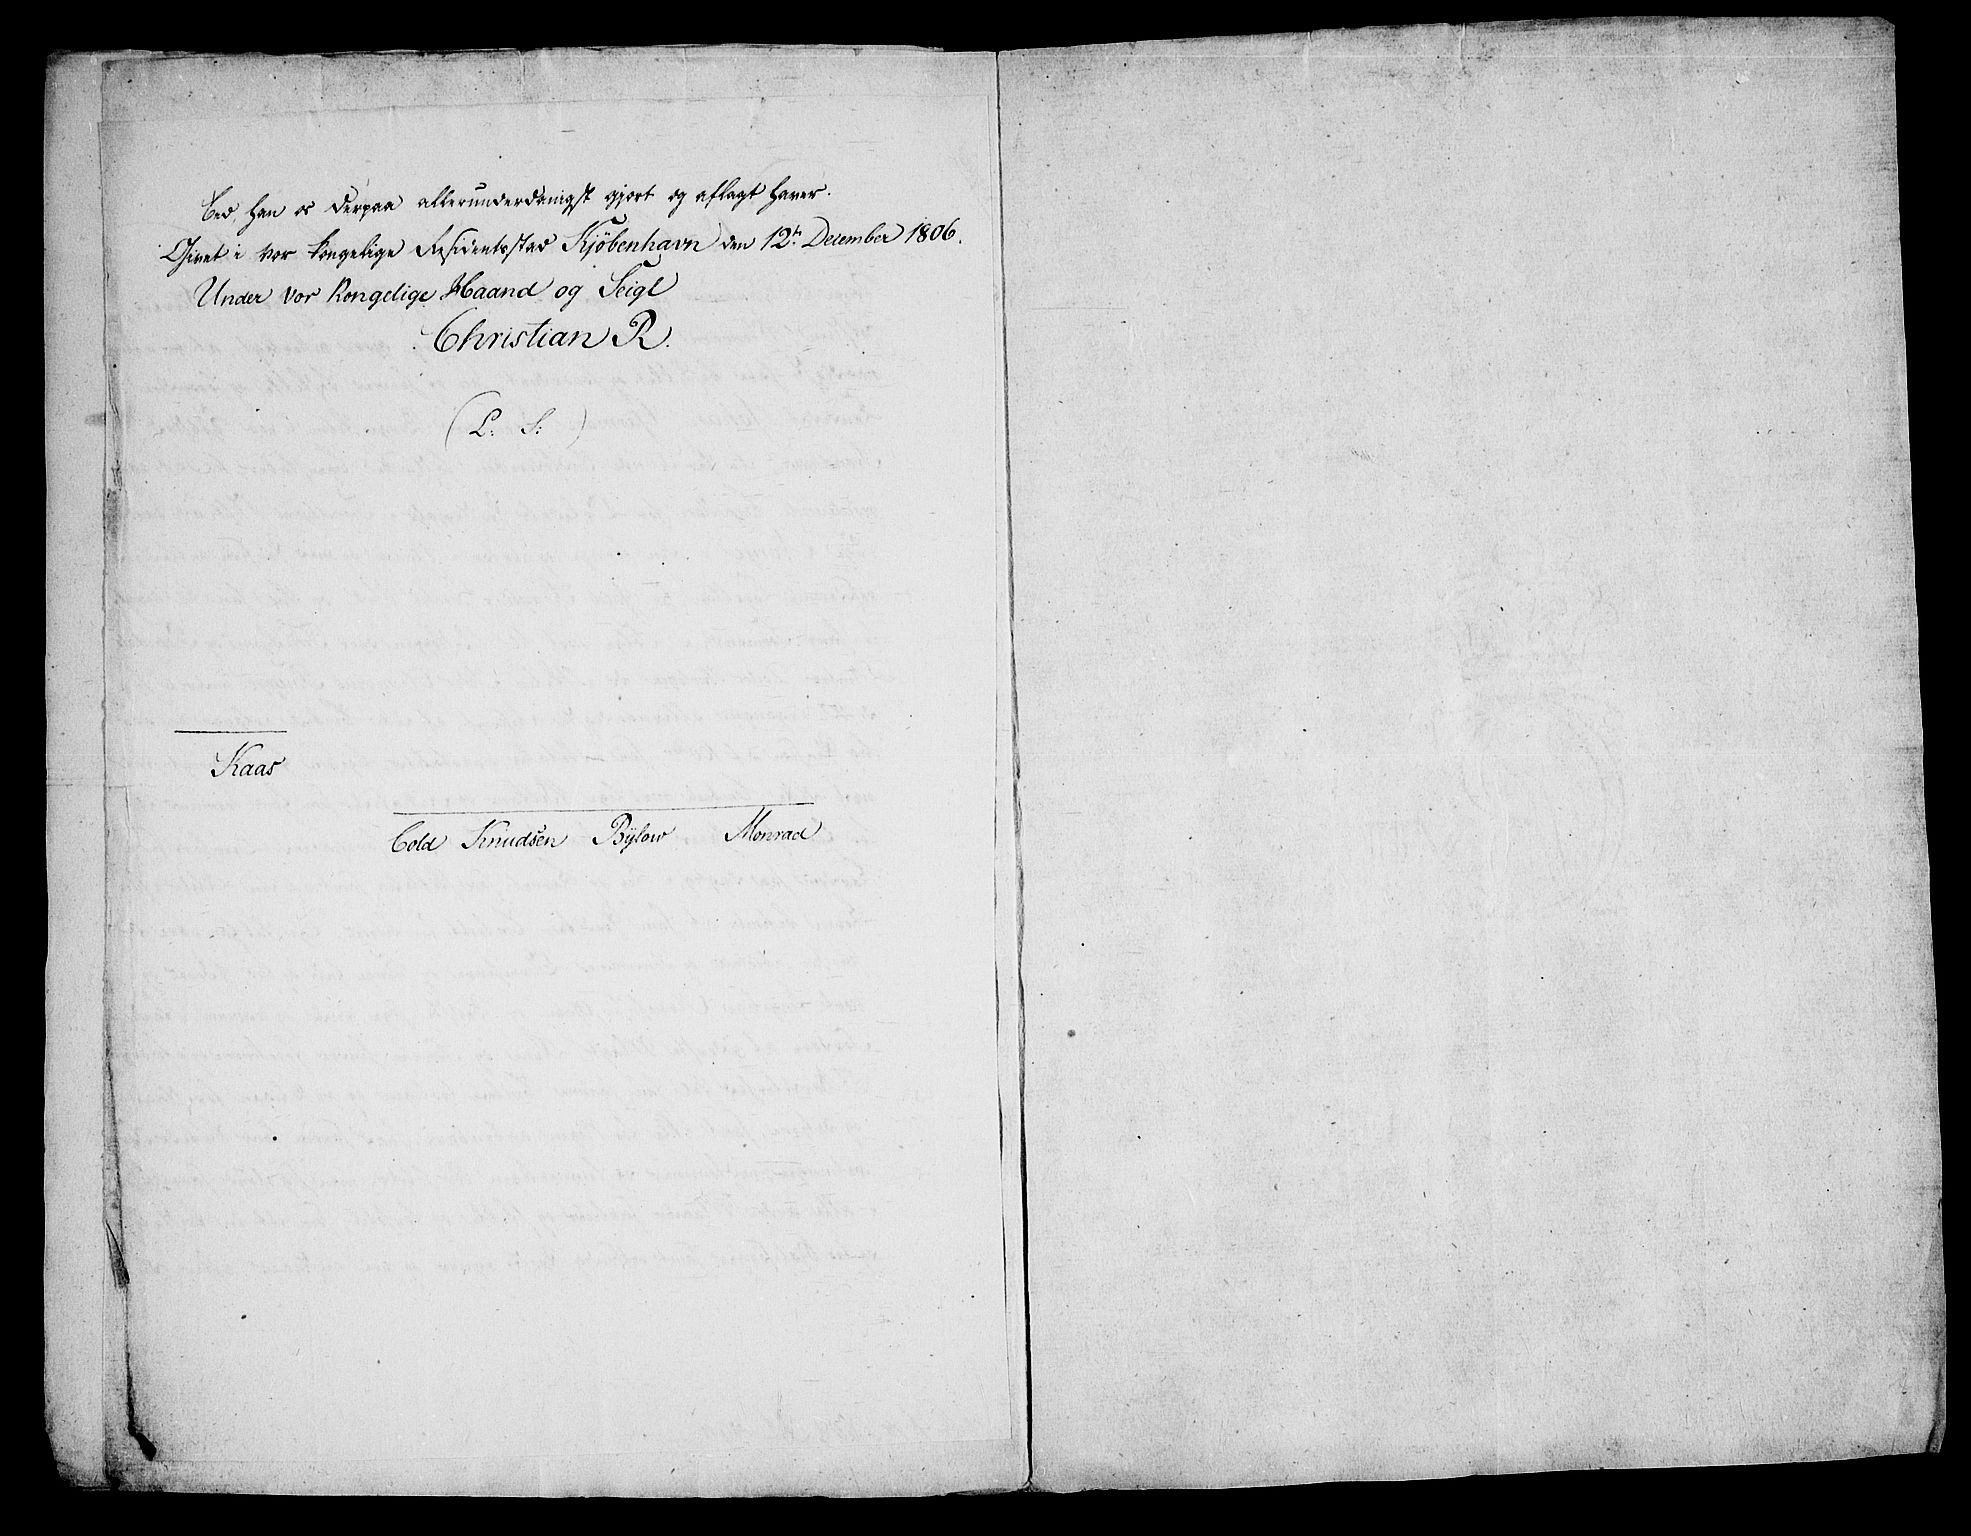 Eed, han os derpaa allerunderdanigst gjort og aflagt haver.
Givet i vor kongelige Residentsstad Kjöbenhavn den 12te December 1806.
Under vor Kongelige Haand og Seigl
Christian R.
(L. S.)
Kaas
Cold Knudsen Bülow Monrad